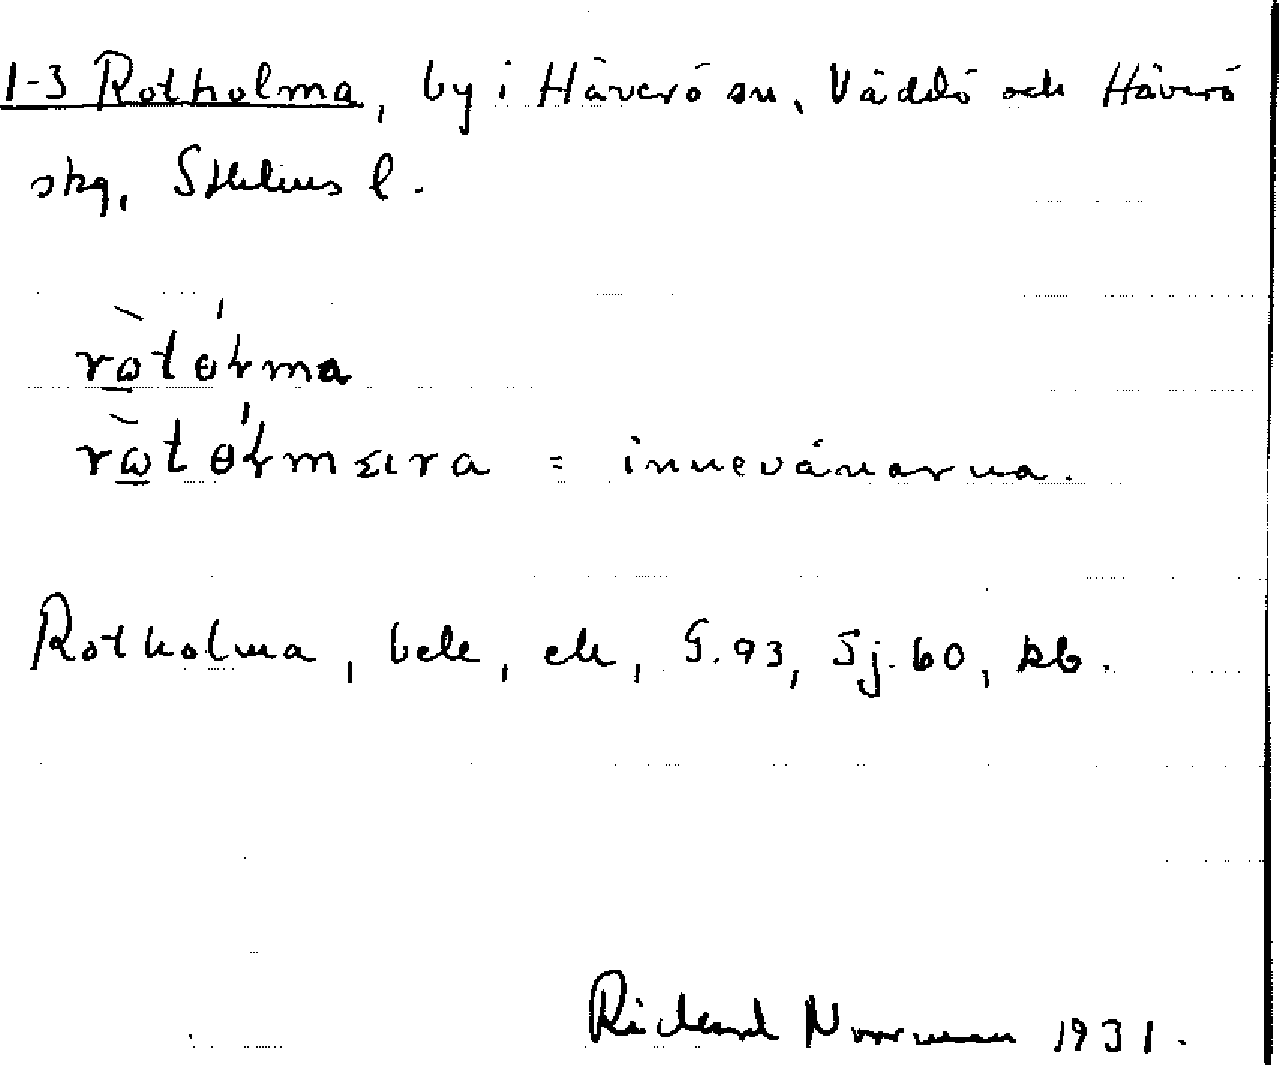 1-3 Rotholma, by i Häverö sn, Väddö och Häverö
skg, Sthlms l.
ròtɵ́ɫma
ròtɵ́ɫmɛɩra = innevånarna.
Rotholma, bek, ek, G.93, Sj.60, kb.
Rickard Norrman 1931.